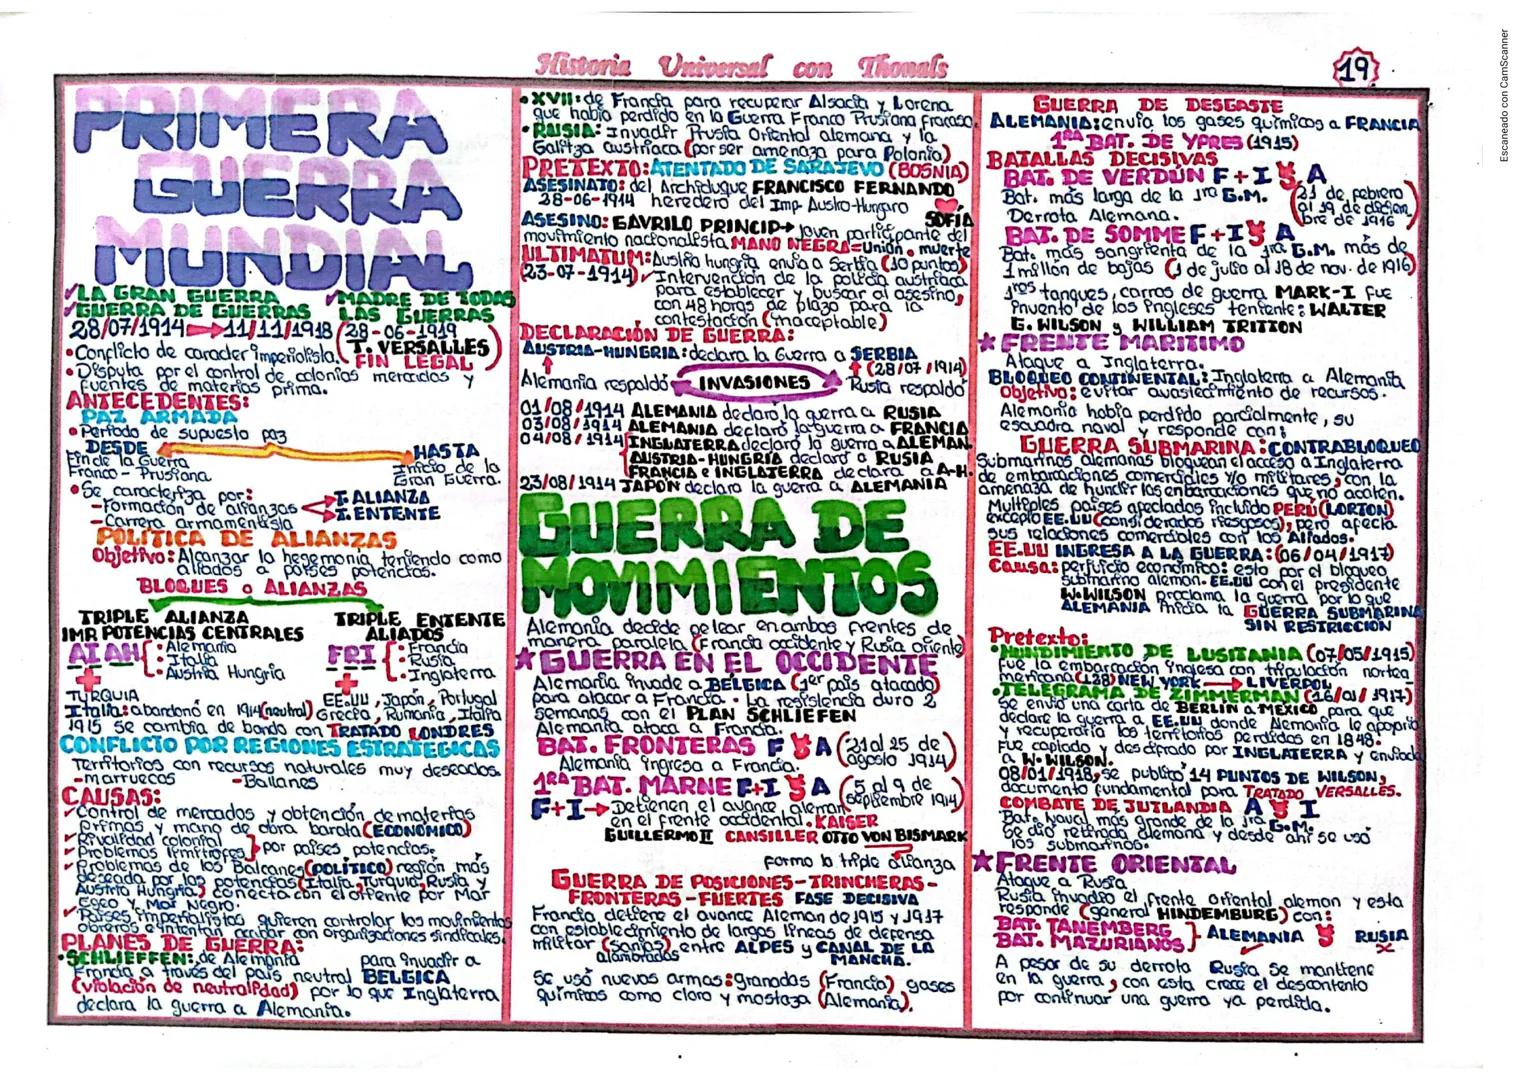 Historia Universal con Thomals
19
Escaneado con CamScanner
PRIMERA
GUERRA
MUNDIAL
✓LA GRAN GUERRA
✓GUERRA DE GUERRAS
✓MADRE DE TODAS
LAS GUERRAS
28/07/1914 → 11/11/1918 (28-06-1919
T. VERSALLES)
FIN LEGAL
•Conflicto de caracter imperialista.
•Disputa por el control de colonias mercados y
fuentes de materias prima.
ANTECEDENTES:
PAZ ARMADA
•Período de supuesto paz
DESDE
HASTA
Fin de la Guerra
Franco - Prusiana
Inicio de la
Gran Guerra.
•Se caracteriza por:
-Formación de alianzas
-Carrera armamentista
T. ALIANZA
T. ENTENTE
POLITICA DE ALIANZAS
Objetivo: Alcanzar la hegemonía teniendo como
aliados a países potencias.
BLOQUES o ALIANZAS
TRIPLE ALIANZA
IMP. POTENCIAS CENTRALES
AIAH {: Alemania
: Italia
: Austria Hungría
+
TURQUIA
TRIPLE ENTENTE
ALIADOS
FRI {: Francia
: Rusia
: Inglaterra
+
EE.UU, Japón, Portugal
Italia: abandonó en 1914 (neutral) Grecia, Rumania, Italia
1915 se cambia de bando con TRATADO LONDRES
CONFLICTO POR REGIONES ESTRATEGICAS
Territorios con recursos naturales muy deseados.
-marruecos -Ballanes
CAUSAS:
✓Control de mercados y obtención de materias
primas y mano de obra barata (ECONÓMICO)
✓Rivalidad colonial
✓Problemas limitrofes } por países potencias.
✓Problemas de los Balcanes (POLÍTICO) región más
deseada por las potencias (Italia, Turquia, Rusia y
Austria Hungría) conecta con el oriente por Mar
Egeo y Mar Negro.
✓Países imperialistas quieren controlar los movimientos
obreros e intentan acabar con organizaciones sindicales.
PLANES DE GUERRA:
•SCHLIEFFEN: de Alemania para invadir a
Francia a través del país neutral BELGICA
(violación de neutralidad) por lo que Inglaterra
declara la guerra a Alemania.
•XVII: de Francia para recuperar Alsacia y Lorena
que había perdido en la Guerra Franco Prusiana fracaso.
•RUSIA: Invadir Prusia Oriental alemana y la
Galitza austriaca (por ser amenaza para Polonia)
PRETEXTO: ATENTADO DE SARAJEVO (BOSNIA)
ASESINATO: del Archiduque FRANCISCO FERNANDO
28-06-1914 heredero del Imp. Austro-Hungaro
SOFÍA
ASESINO: GAVRILO PRINCIP → joven participante del
movimiento nacionalista MANO NEGRA = Unión o muerte
ULTIMATUM: Austria hungría envia a Serbia (10 puntos)
(23-07-1914) ✓Intervención de la policía austriaca
para establecer y buscar al asesino,
con 48 horas de plazo para la
contestación (inaceptable)
DECLARACIÓN DE GUERRA:
AUSTRIA-HUNGRIA: declara la Guerra a SERBIA
(28/07/1914)
Alemania respaldó
INVASIONES
Rusia respaldó
01/08/1914 ALEMANIA declaró la guerra a RUSIA
03/08/1914 ALEMANIA declaró la guerra a FRANCIA
04/08/1914 INGLATERRA declaró la guerra a ALEMAN.
AUSTRIA-HUNGRIA declaró a RUSIA
FRANCIA e INGLATERRA declara a A-H.
23/08/1914 JAPÓN declara la guerra a ALEMANIA
GUERRA DE
MOVIMIENTOS
Alemania decide pelear en ambos frentes de
manera paralela (Francia occidente y Rusia oriente)
★GUERRA EN EL OCCIDENTE
Alemania invade a BÉLGICA (1er país atacado)
para atacar a Francia. La resistencia duro 2
semanas con el PLAN SCHLIEFEN
Alemania ataca a Francia.
BAT. FRONTERAS F A (21 al 25 de
agosto 1914)
Alemania ingresa a Francia.
1RA BAT. MARNE F+I A (5 al 9 de
septiembre 1914)
F+I → Detienen el avance aleman
en el frente occidental. KAISER
GUILLERMO II CANSILLER OTTO VON BISMARK
formo la triple alianza
GUERRA DE POSICIONES-TRINCHERAS-
FRONTERAS-FUERTES FASE DECISIVA
Francia detiene el avance Aleman de 1915 y 1917
con establecimiento de largos líneas de defensa
militar (sanjas) entre ALPES y CANAL DE LA
alambrados MANCHA.
Se usó nuevos armas: granadas (Francia), gases
químicos como cloro y mostaza (Alemania).
GUERRA DE DESGASTE
ALEMANIA: envía los gases químicos a FRANCIA
1RA BAT. DE YPRES (1915)
BATALLAS DECISIVAS
BAT. DE VERDÚN F+I A
Bat. más larga de la 1ra G.M. (21 de febrero
al 19 de diciem
bre de 1916)
Derrota Alemana.
BAT. DE SOMME F+I A
Bat. más sangrienta de la 1ra G.M. más de
1 millón de bajas (1 de julio al 18 de nov. de 1916)
1ros tanques, carros de guerra MARK-I fue
invento de los ingleses teniente: WALTER
G. WILSON y WILLIAM TRITTON
★FRENTE MARITIMO
Ataque a Inglaterra.
BLOQUEO CONTINENTAL: Inglaterra a Alemania
Objetivo: evitar avastecimiento de recursos.
Alemania había perdido parcialmente, su
escuadra naval y responde con:
GUERRA SUBMARINA: CONTRABLOQUEO
Submarinos alemanas bloquean el acceso a Inglaterra
de embarcaciones comerciales y/o militares, con la
amenaza de hundir las embarcaciones que no acaten.
Multiples países afectados incluido PERÚ (LORTON)
excepto EE.UU (considerados riesgosos), pero afecta
sus relaciones comerciales con los Aliados.
EE.UU INGRESA A LA GUERRA: (06/04/1917)
Causa: perjuicio económico: esto por el bloqueo
submarino aleman. EE.UU con el presidente
W. WILSON proclama la guerra por lo que
ALEMANIA inicia la GUERRA SUBMARINA
SIN RESTRICCIÓN
Pretexto:
•HUNDIMIENTO DE LUSITANIA (07/05/1915)
fue la embarcación inglesa con tripulación nortea
mericana (128) NEW YORK → LIVERPOL
•TELEGRAMA DE ZIMMERMAN (16/01/1917)
Se envío una carta de BERLIN a MÉXICO para que
declare la guerra a EE.UU donde Alemania le apoyaria
y recuperaria los territorios perdidos en 1848.
Fue captado y descifrado por INGLATERRA y enviada
a W. WILSON.
08/01/1918, se publitó 14 PUNTOS DE WILSON,
documento fundamental para TRATADO VERSALLES.
COMBATE DE JUTLANDIA A I
Bat. Naval más grande de la 1ra G.M.
Se dio retirada alemana y desde ahí se usó
los submarinos.
★FRENTE ORIENTAL
Ataque a Rusia
Rusia invadió el frente oriental aleman y esta
responde (general HINDEMBURG) con:
BAT. TANEMBERG
BAT. MAZURIANOS } ALEMANIA RUSIA
A pesar de su derrota Rusia se mantiene
en la guerra, con esta crece el descontento
por continuar una guerra ya perdida.